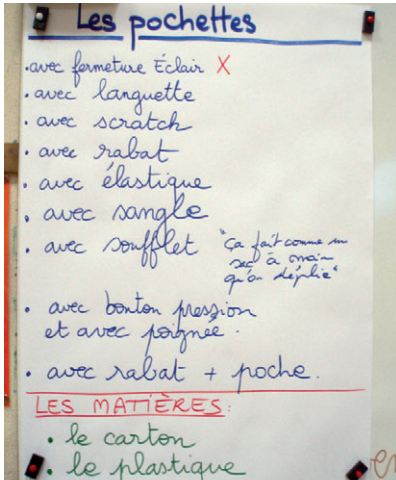 Les pochettes
.avec fermeture Éclair X
.avec languette
. avec scratch
. avec rabat
. avec élastique
. avec sangle
. avec soufflet "ça fait comme un
sac à main
qu'on déplie"
. avec bouton pression
et avec poignée.
. avec rabat + poche.
LES MATIÈRES:
. le carton
. le plastique